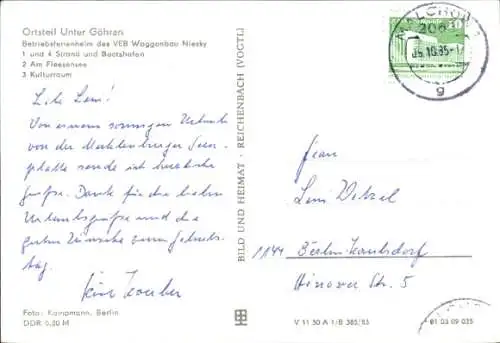 Ortsteil Unter Göhren
Betriebsferienheim des VEB Waggonbau Niesky
1 und 4 Strand und Bootshafen
2 Am Fleesensee
3 Kulturraum
Von einem sonnigen Urlaub
von der Mecklenburger Seen-
platte sende ich herzliche
Grüße. Dank für die lieben
Urlaubsgrüße und die
guten Wünsche zum Geburts-
tag.
Foto: Kampmann, Berlin
DDR 0,20 M
BILD UND HEIMAT · REICHENBACH (VOGTL)
MALCHOW 1
206
05.10.85
g
10
Leni
1144 Berlin-Kaulsdorf
Str. 5
V 11 50 A 1/B 385/85
01 03 09 035